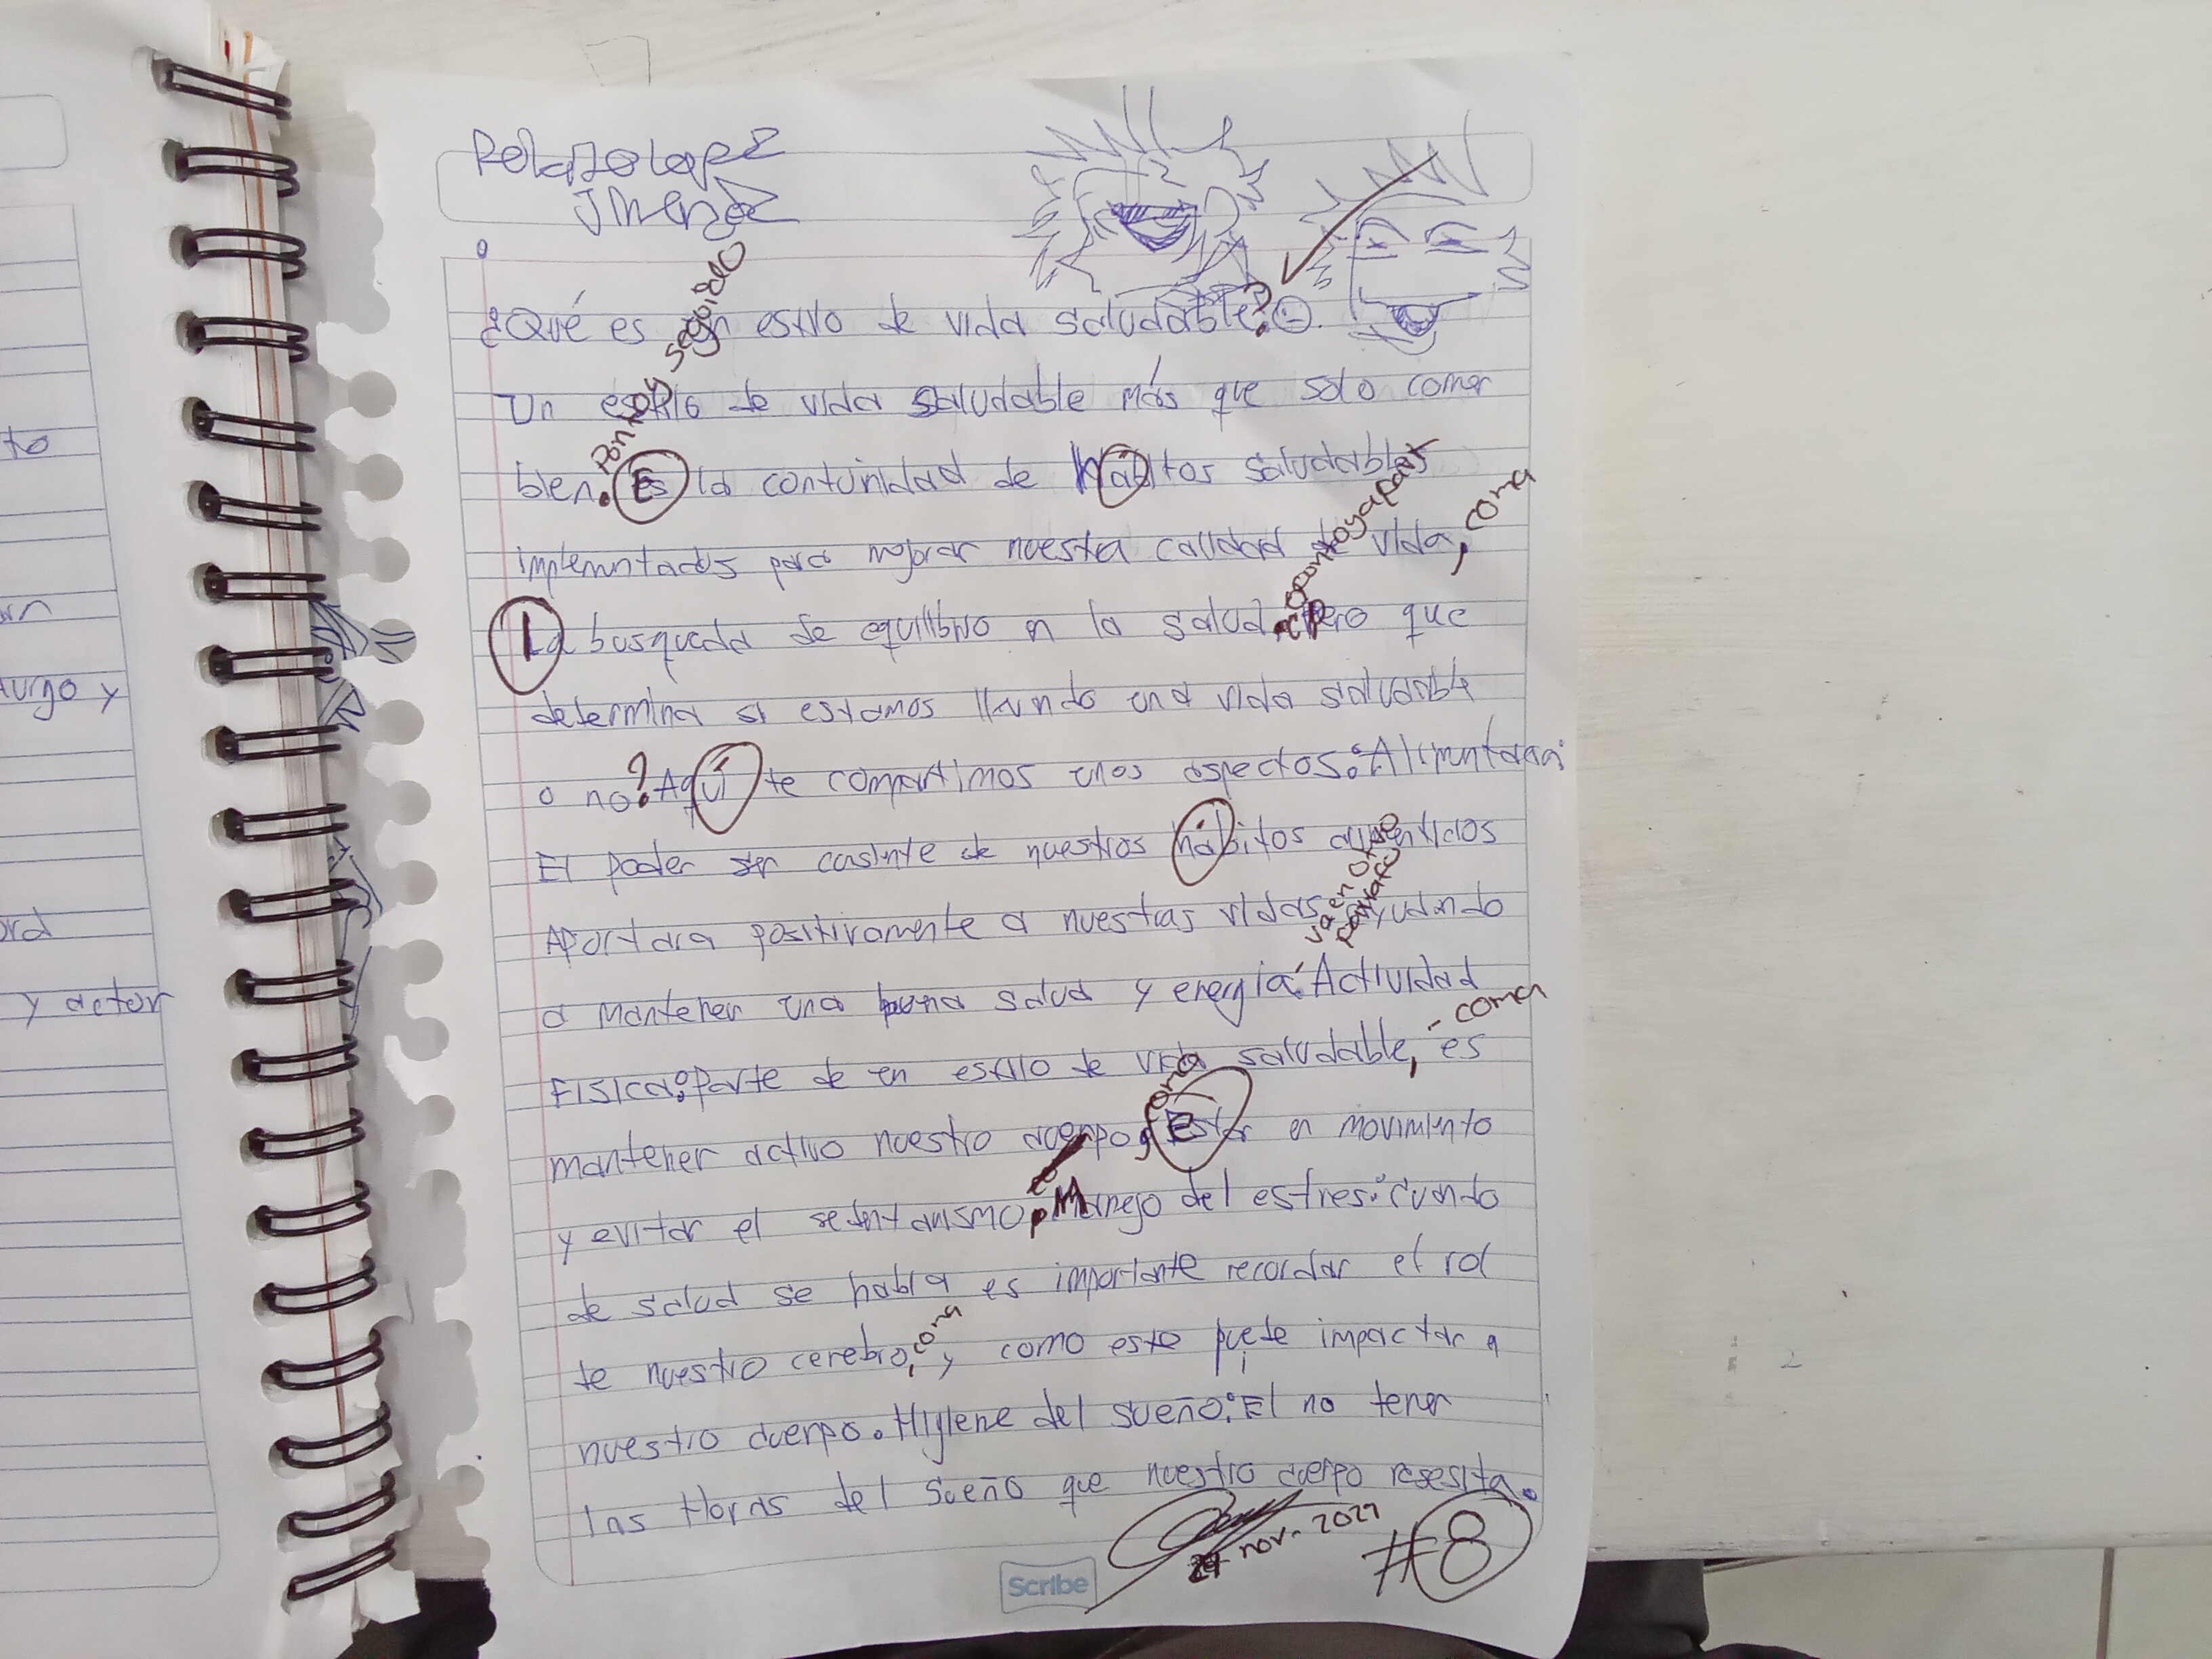 to
turgo y
y actor
¿Qué es un estilo de vida saludable?
punto y seguido
Un estilo de vida saludable más que solo comer
bien. Es la contunidad de hábitos saludables
implemntados para mejorar nuestra calidad de vida, coma
punto y apart
La busqueda de equilibrio en la salud. Pero que
determina si estamos llevando una vida saludable
o no? Aquí te compartimos unos aspectos:
El poder ser cosinte de nuestros hábitos
Aportara positivamente a nuestras vidas ayudando
va en otro párrafo
a mantener una buena salud y energía. Actividad
FISICA: Parte de un estilo de vida saludable, es - coma
mantener activo nuestro cuerpo, Estar en movimiento
coma
y evitar el sedentarismo, Manejo del estres: Cuando
de salud se habla es importante recordar el rol
te nuestro cerebro, y como este puede impactar a
coma
nuestro cuerpo. Higiene del sueño: El no tener
las Horas del sueño que nuestro cuerpo resesita.
24 nov. 2021
#8
Scribe